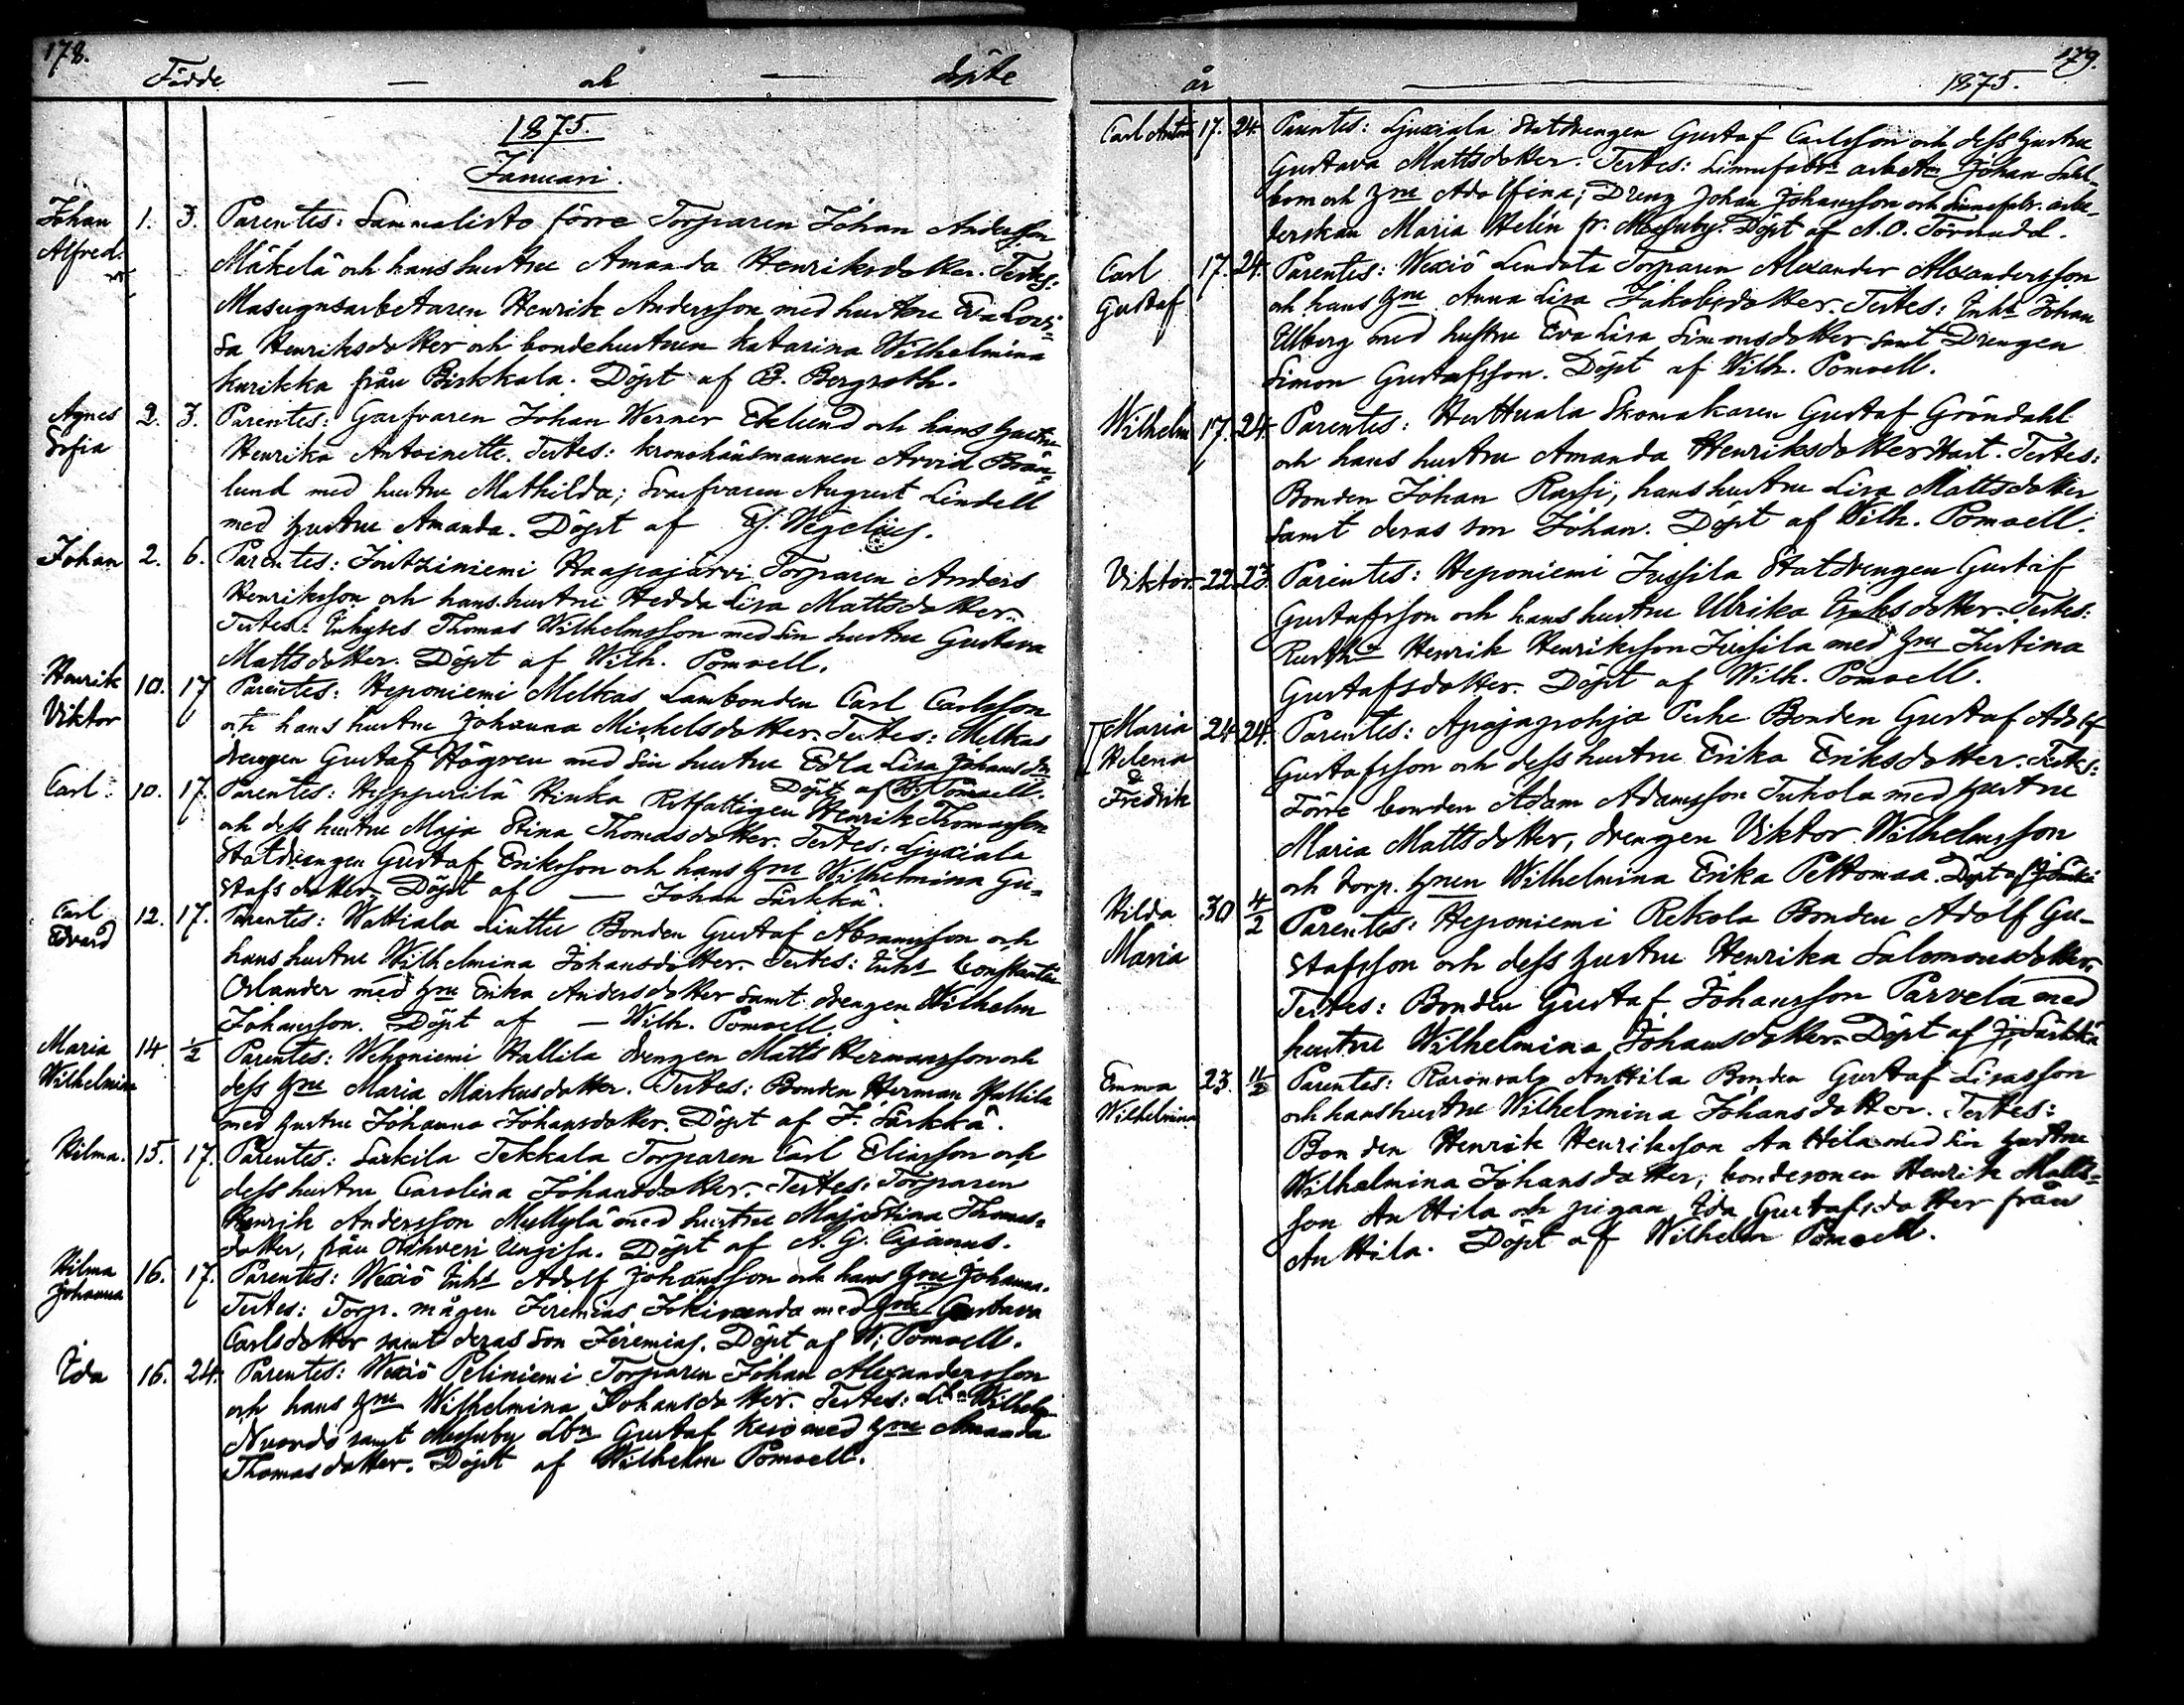 178.
Födde — och — döpte
1875.
Januari.
Johan Alfred. 1. 3. Parentes: Sammalisto förre Torparen Johan Andersson
Mäkelä och hans hustru Amanda Henriksdotter. Testes:
Masugnsarbetaren Henrik Andersson med hustru Eva Lovi-
sa Henriksdotter och bondehustrun Katarina Wilhelmina
Kurikka från Birkkala. Döpt af B. Bergroth.
Agnes Sofia 2. 3. Parentes: Garfvaren Johan Werner Ekelund och hans hustru
Henrika Antoinette. Testes: Kronolänsmannen Arvid Brän-
lund med hustru Mathilda; Svarfvaren August Lindell
med hustru Amanda. Döpt af Ej. Wegelius.
Johan 2. 6. Parentes: Joutziniemi Haapajärvi Torparen Anders
Henriksson och hans hustru Hedda Lisa Mattsdotter.
Testes: Inhyses Thomas Wilhelmsson med sin hustru Gustava
Mattsdotter. Döpt af Wilh. Pomoell.
Henrik Viktor 10. 17 Parentes: Heponiemi Melkas Lambonden Carl Carlsson
och hans hustru Johanna Michelsdotter. Testes: Melkas
drengen Gustaf Högren med sin hustru Edla Lisa Johansdr
Döpt af W. Pomoell.
Carl. 10. 17. Parentes: Heppurilä Hinka Rotfattigen Henrik Thomasson
och dess hustru Maja Stina Thomasdotter. Testes: Ljuxiala
Statdrengen Gustaf Eriksson och hans hru Wilhelmina Gu-
stafsdotter. Döpt af — Johan Särkkä.
Carl Edvard 12. 17. Parentes: Wattiala Liuttu Bonden Gustaf Abramsson och
hans hustru Wilhelmina Johansdotter. Testes: Inhs Constantin
Orlander med hru Erika Andersdotter samt drengen Wilhelm
Johansson. Döpt af — Wilh. Pomoell.
Maria Wilhelmina 14. 1/2 Parentes: Wehoniemi Hallila drengen Matts Hermansson och
dess hru Maria Markusdotter. Testes: Bonden Herman Hallila
med hustru Johanna Johansdotter. Döpt af J. Särkkä.
Hilma. 15. 17. Parentes: Sarkila Tekkala Torparen Carl Eliasson och
dess hustru Carolina Johansdotter. Testes: Torparen
Henrik Andersson Myllylä med hustru Maja Stina Thomas-
dotter, från Orihvesi Uugisa. Döpt af A. G. Cajanus.
Hilma Johanna 16. 17. Parentes: Wexiö Inhs Adolf Johansson och hans hru Johanna.
Testes: Torp. mågen Jeremias Jokiranda med hru Gustava
Carlsdotter samt deras son Jeremias. Döpt af W. Pomoell.
Ida 16. 24. Parentes: Wexiö Peliniemi Torparen Johan Alexandersson
och hans hru Wilhelmina Johansdotter. Testes: Lbn Wilhelm
samt Messuby Lbn Gustaf Keso med hru Amanda
Thomasdotter. Döpt af Wilhelm Pomoell.
179.
år — 1875.
Carl Anton 17. 24. Parentes: Ljuxiala Statdrengen Gustaf Carlsson och dess hustru
Gustava Mattsdotter. Testes: Linnefabrs arbetn Johan Sahl-
bom och hru Adolfina; Dreng Johan Johansson och Linnefabr. arbe-
terskan Maria Helin fr. Messuby. Döpt af A. O. Törnudd.
Carl Gustaf 17. 24. Parentes: Wexiö Lendota Torparen Alexander Alexandersson
och hans hru Anna Lisa Jakobsdotter. Testes: Inhs Johan
Ulberg med hustru Eva Lisa Simonsdotter samt Drengen
Simon Gustafsson. Döpt af Wilh. Pomoell.
Wilhelm 17. 24. Parentes: Huttuala Skomakaren Gustaf Gröndahl
och hans hustru Amanda Henriksdotter Hart. Testes:
Bonden Johan Rassi, hans hustru Lisa Mattsdotter
samt deras son Johan. Döpt af Wilh. Pomoell.
Viktor 22. 23. Parentes: Heponiemi Jussila Statdrengen Gustaf
Gustafsson och hans hustru Ulrika Eriksdotter. Testes:
Rusth Henrik Henriksson Jussila med hru Justina
Gustafsdotter. Döpt af Wilh. Pomoell.
Maria Helena & Fredrik 24. 24. Parentes: Apajapohja Perhe Bonden Gustaf Adolf
Gustafsson och dess hustru Erika Eriksdotter. Testes:
Förre bonden Adam Adamsson Tuhola med hustru
Maria Mattsdotter, drengen Viktor Wilhelmsson
och torp. hrun Wilhelmina Erika Peltomaa. Döpt af J. Särkkä
Hilda Maria 30 4/2 Parentes: Heponiemi Rekola Bonden Adolf Gu-
stafsson och dess hustru Henrika Salomonsdotter.
Testes: Bonden Gustaf Johansson Parvela med
hustru Wilhelmina Johansdotter. Döpt af J. Särkkä
Emma Wilhelmina 23. 11/2 Parentes: Raronvalp Anttila Bonden Gustaf Lisasson
och hans hustru Wilhelmina Johansdotter. Testes:
Bonden Henrik Henriksson Anttila med sin hustru
Wilhelmina Johansdotter; bondesonen Henrik Matts-
son Anttila och pigan Ida Gustafsdotter från
Anttila. Döpt af Wilhelm Pomoell.